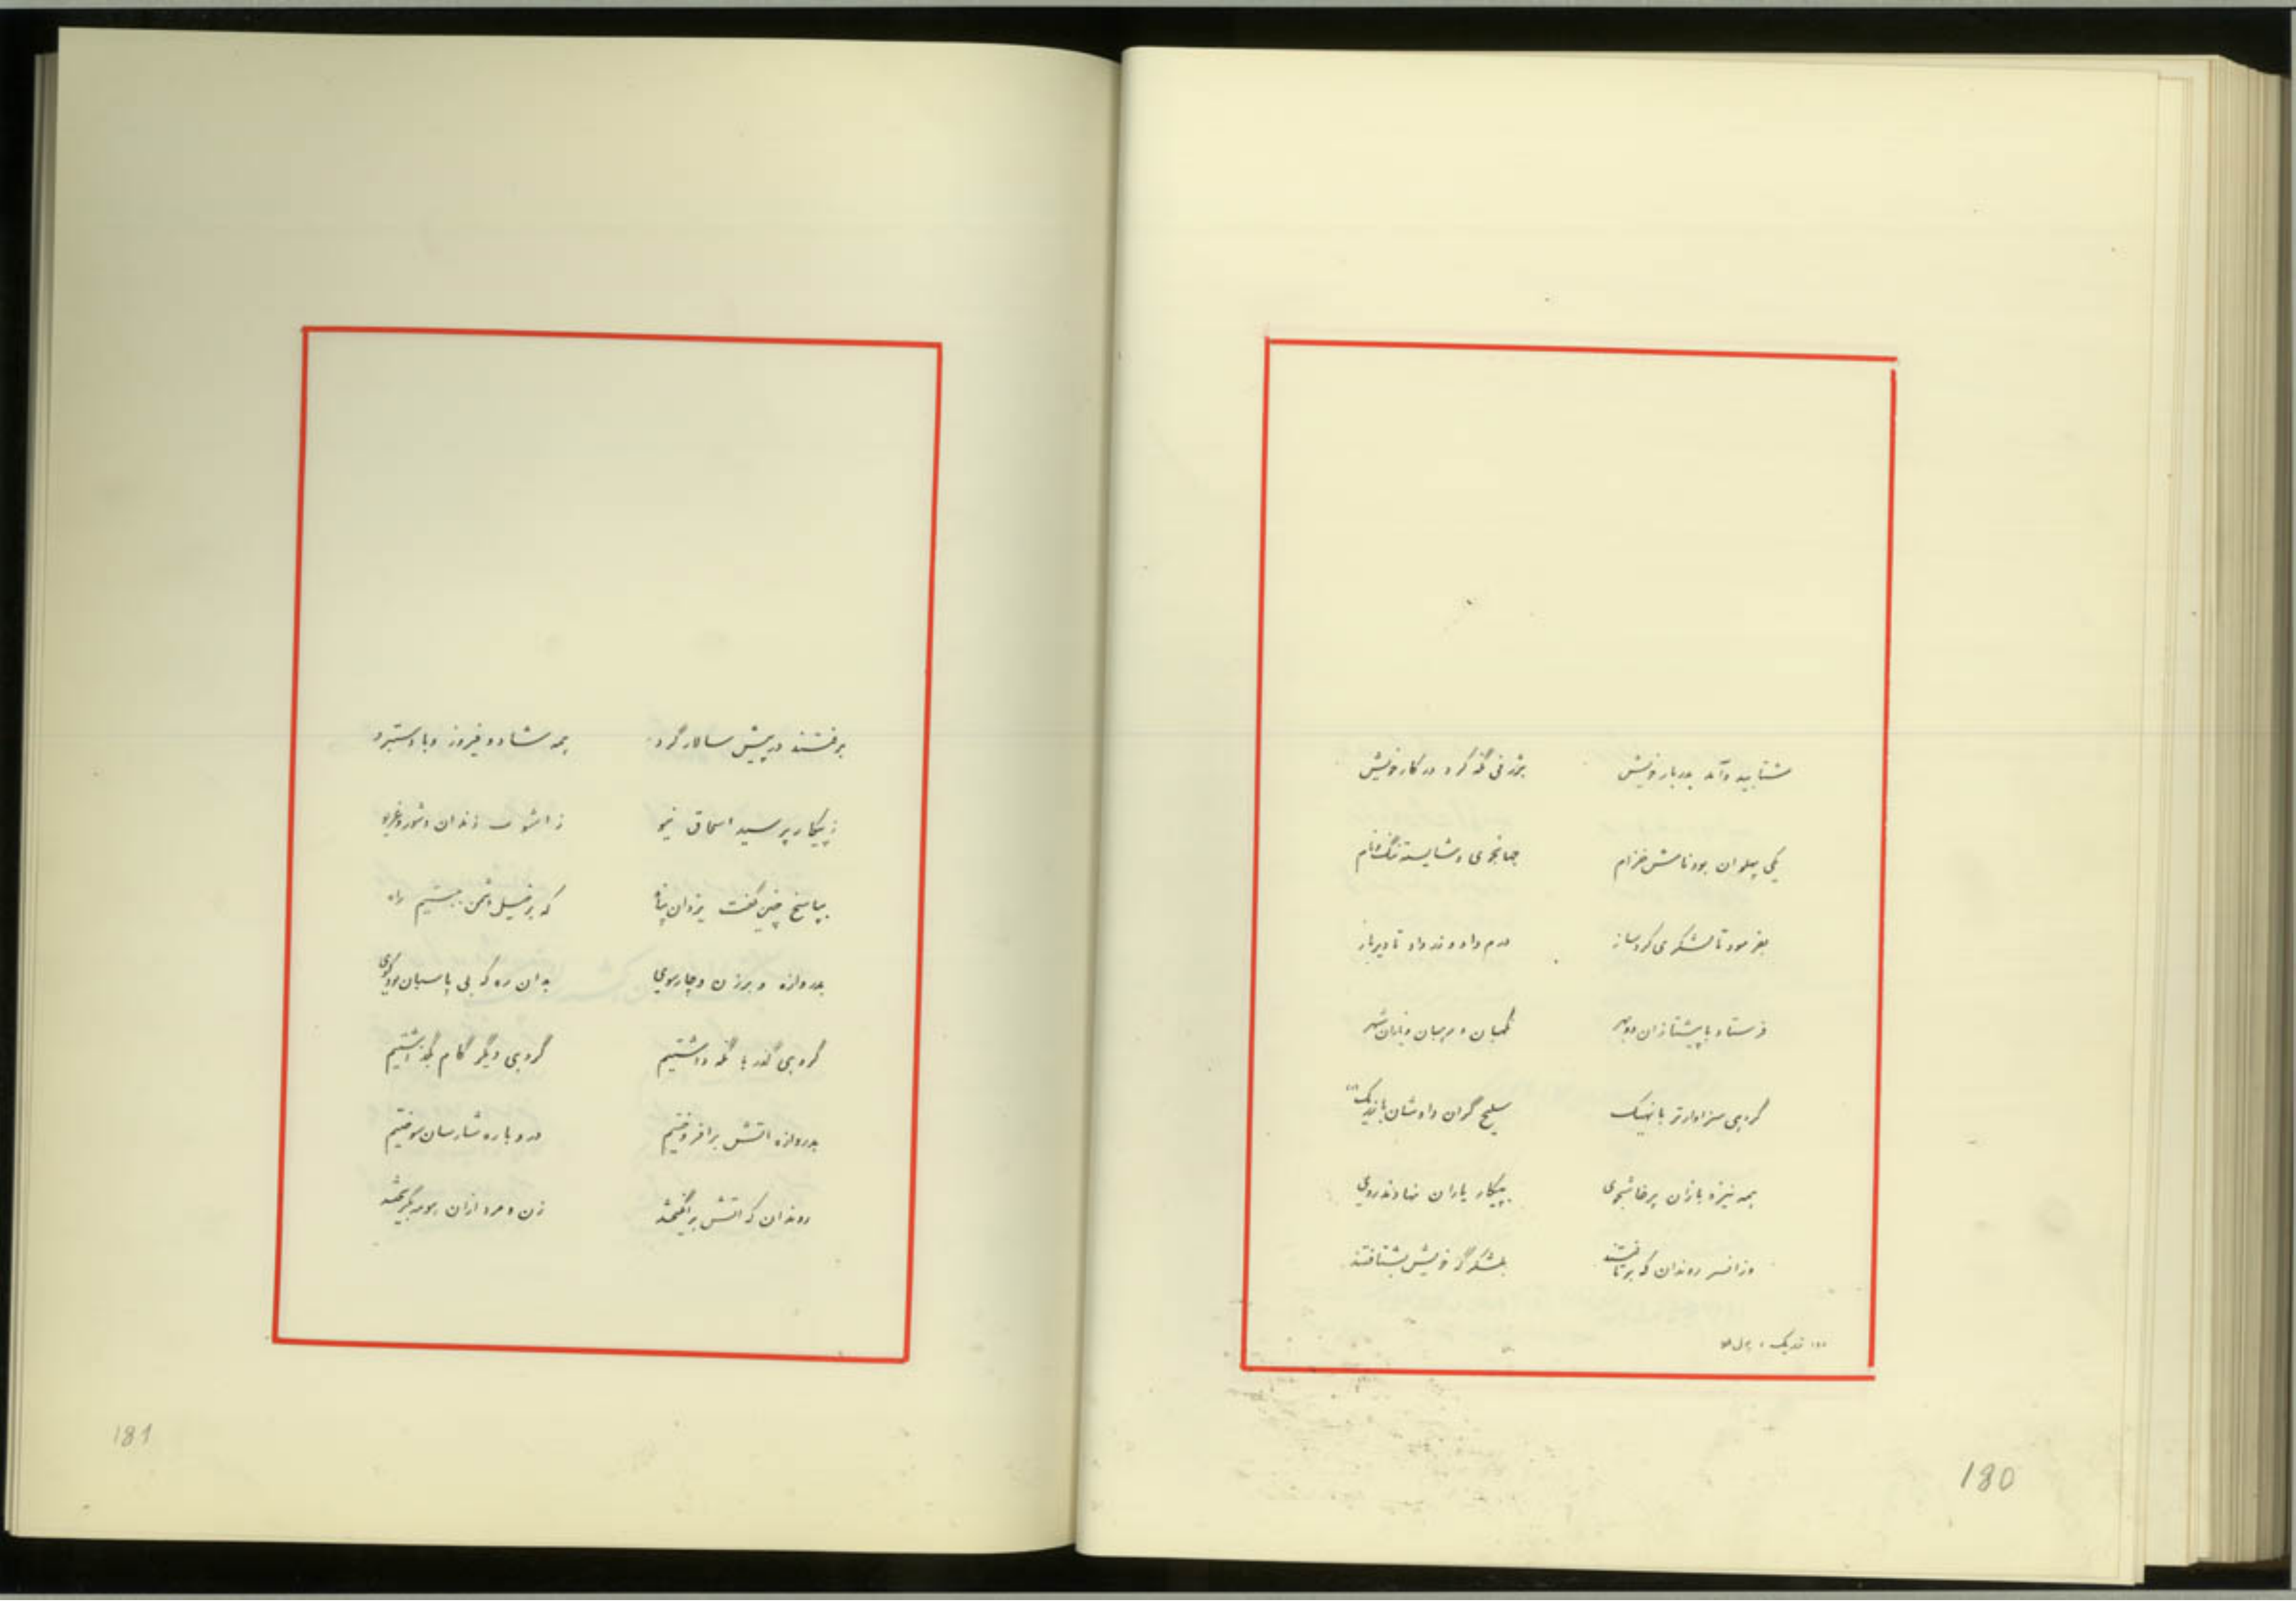 شتابید و آمد بدربار خویش    بژرفی نگه کرد در کار خویش
یکی پهلوان بود نامش خزام    جهانجوی و شایسته ننگ و نام
بفرمود تا لشکری کرد ساز    درم داد و
فرستاد با پیشتازان دو بهر    نگهبان و مرزبان و یاران شهر
گروهی سزاوارتر با نهیک    سلیح گران دادشان با
همه نیزه بازان پرخاشجوی    بپیکار یاران نهادند روی
وز انسر روندان که برتافتند    بلشکرگه خویش بشتافتند
180
برفتند در پیش سالار گرد    همه شاد و فیروز و با دستبرد
ز پیکار پرسید اسحاق نیو    ز آشوب زندان و شور و غریو
بپاسخ چنین گفت یزدان پناه    که بر خیل دشمن ببستیم راه
بدروازه و برزن و چارسوی    بدان ره که بی پاسبان بود کوی
گروهی گذرها نگه داشتیم    گروهی دگر گام بگذاشتیم
بدروازه آتش برافروختیم    در و باره شارسان سوختیم
روندان که آتش برانگیختند    زن و مرد ازان بوم بگریختند
181